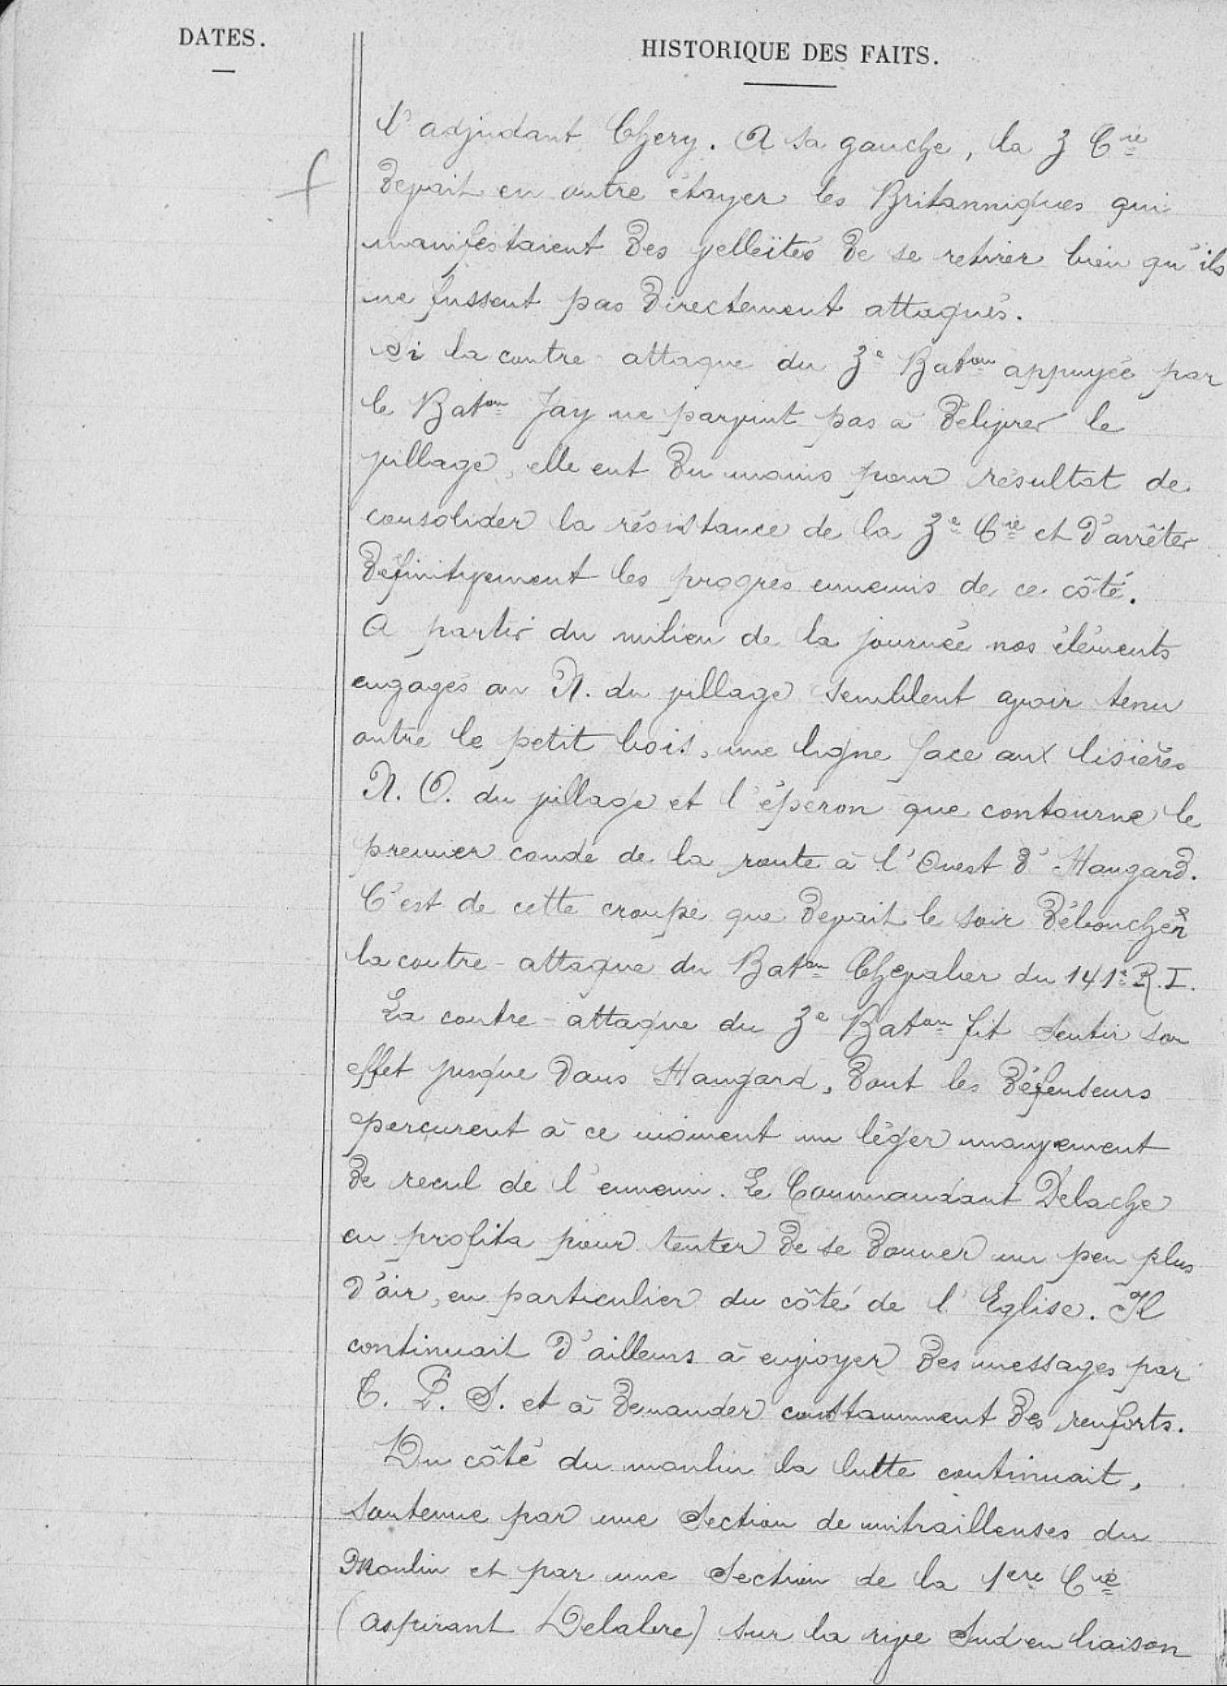 DATES.
HISTORIQUE DES FAITS.
l'adjudant Chery. A sa gauche, la 3 Cie
devait en outre étayer les Britanniques qui
manifestaient des velleïtés de se retirer bien qu'ils
ne fussent pas directement attaqués.
Si la contre-attaque du 3e Baton appuyée par
le Baton Jay ne parvint pas à délivrer le
village, elle eut du moins pour résultat de
consolider la résistance de la 3e Cie et d'arrêter
définitivement les progrès ennemis de ce côté.
A partir du milieu de la journée nos éléments
engagés au N. du village semblent avoir tenu
outre le petit bois, une ligne face aux lisières
N.O. du village et l'éperon que contourne le
premier coude de la route à l'Ouest d'Hangard.
C'est de cette croupe que devait le soir déboucher
la contre-attaque du Baton Chevalier du 141e R.I.
La contre-attaque du 3e Baton fit sentir son
effet jusque dans Hangard, dont les défenseurs
perçurent à ce moment un léger mouvement
de recul de l'ennemi. Le Commandant Delache
en profita pour tenter de se donner un peu plus
d'air, en particulier du côté de l'Eglise. Il
continuait d'ailleurs à envoyer des messages par
T. P. S. et à demander constamment des renforts.
Du côté du moulin la lutte continuait,
soutenue par une Section de mitrailleuses du
Moulin et par une Section de la 1ere Cie
(aspirant Delabre) sur la rive Sud en liaison